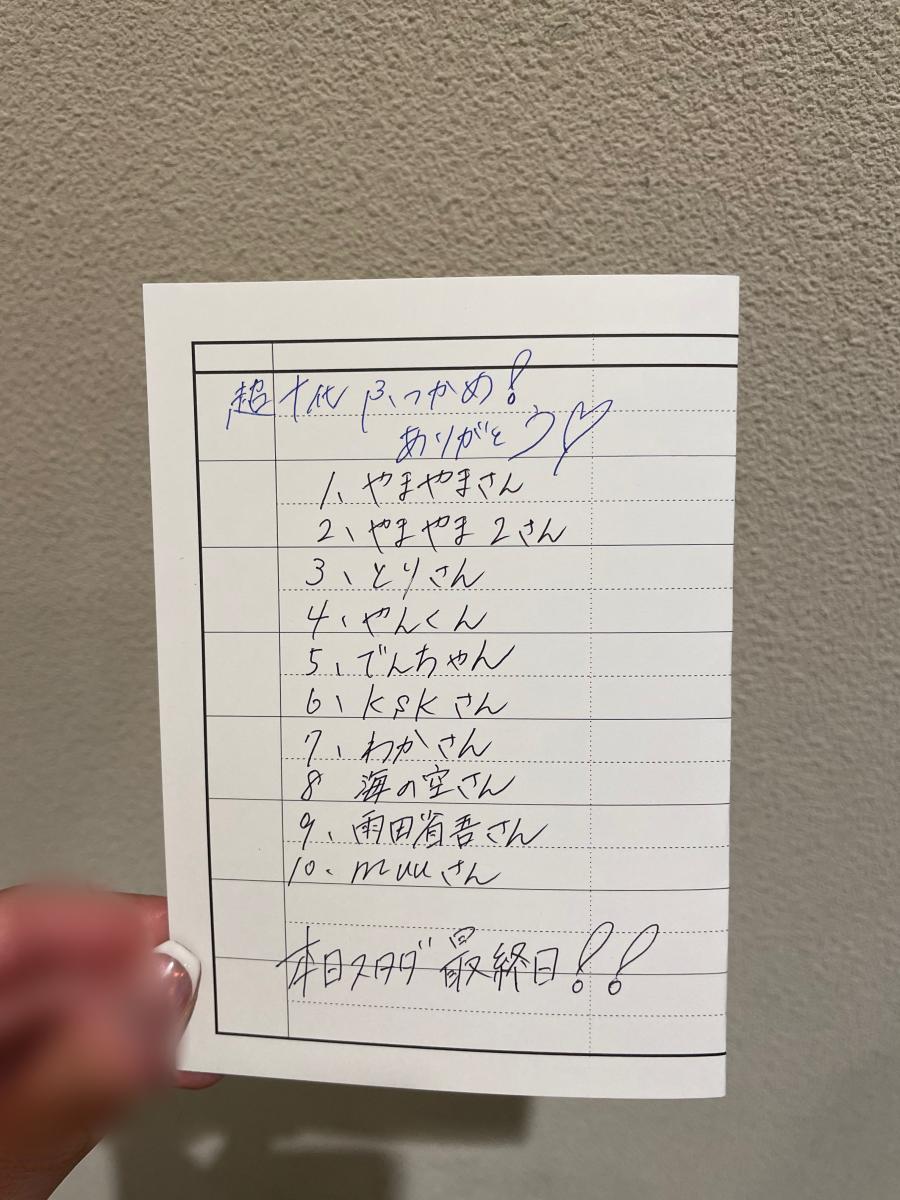 超十代ふつかめ!
ありがとう♡
1、やまやまさん
2、やまやま2さん
3、とりさん
4、やんくん
5、でんちゃん
6、kskさん
7、わかさん
8 海の空さん
9、雨田省吾さん
10、muuさん
本日スタダ最終日!!